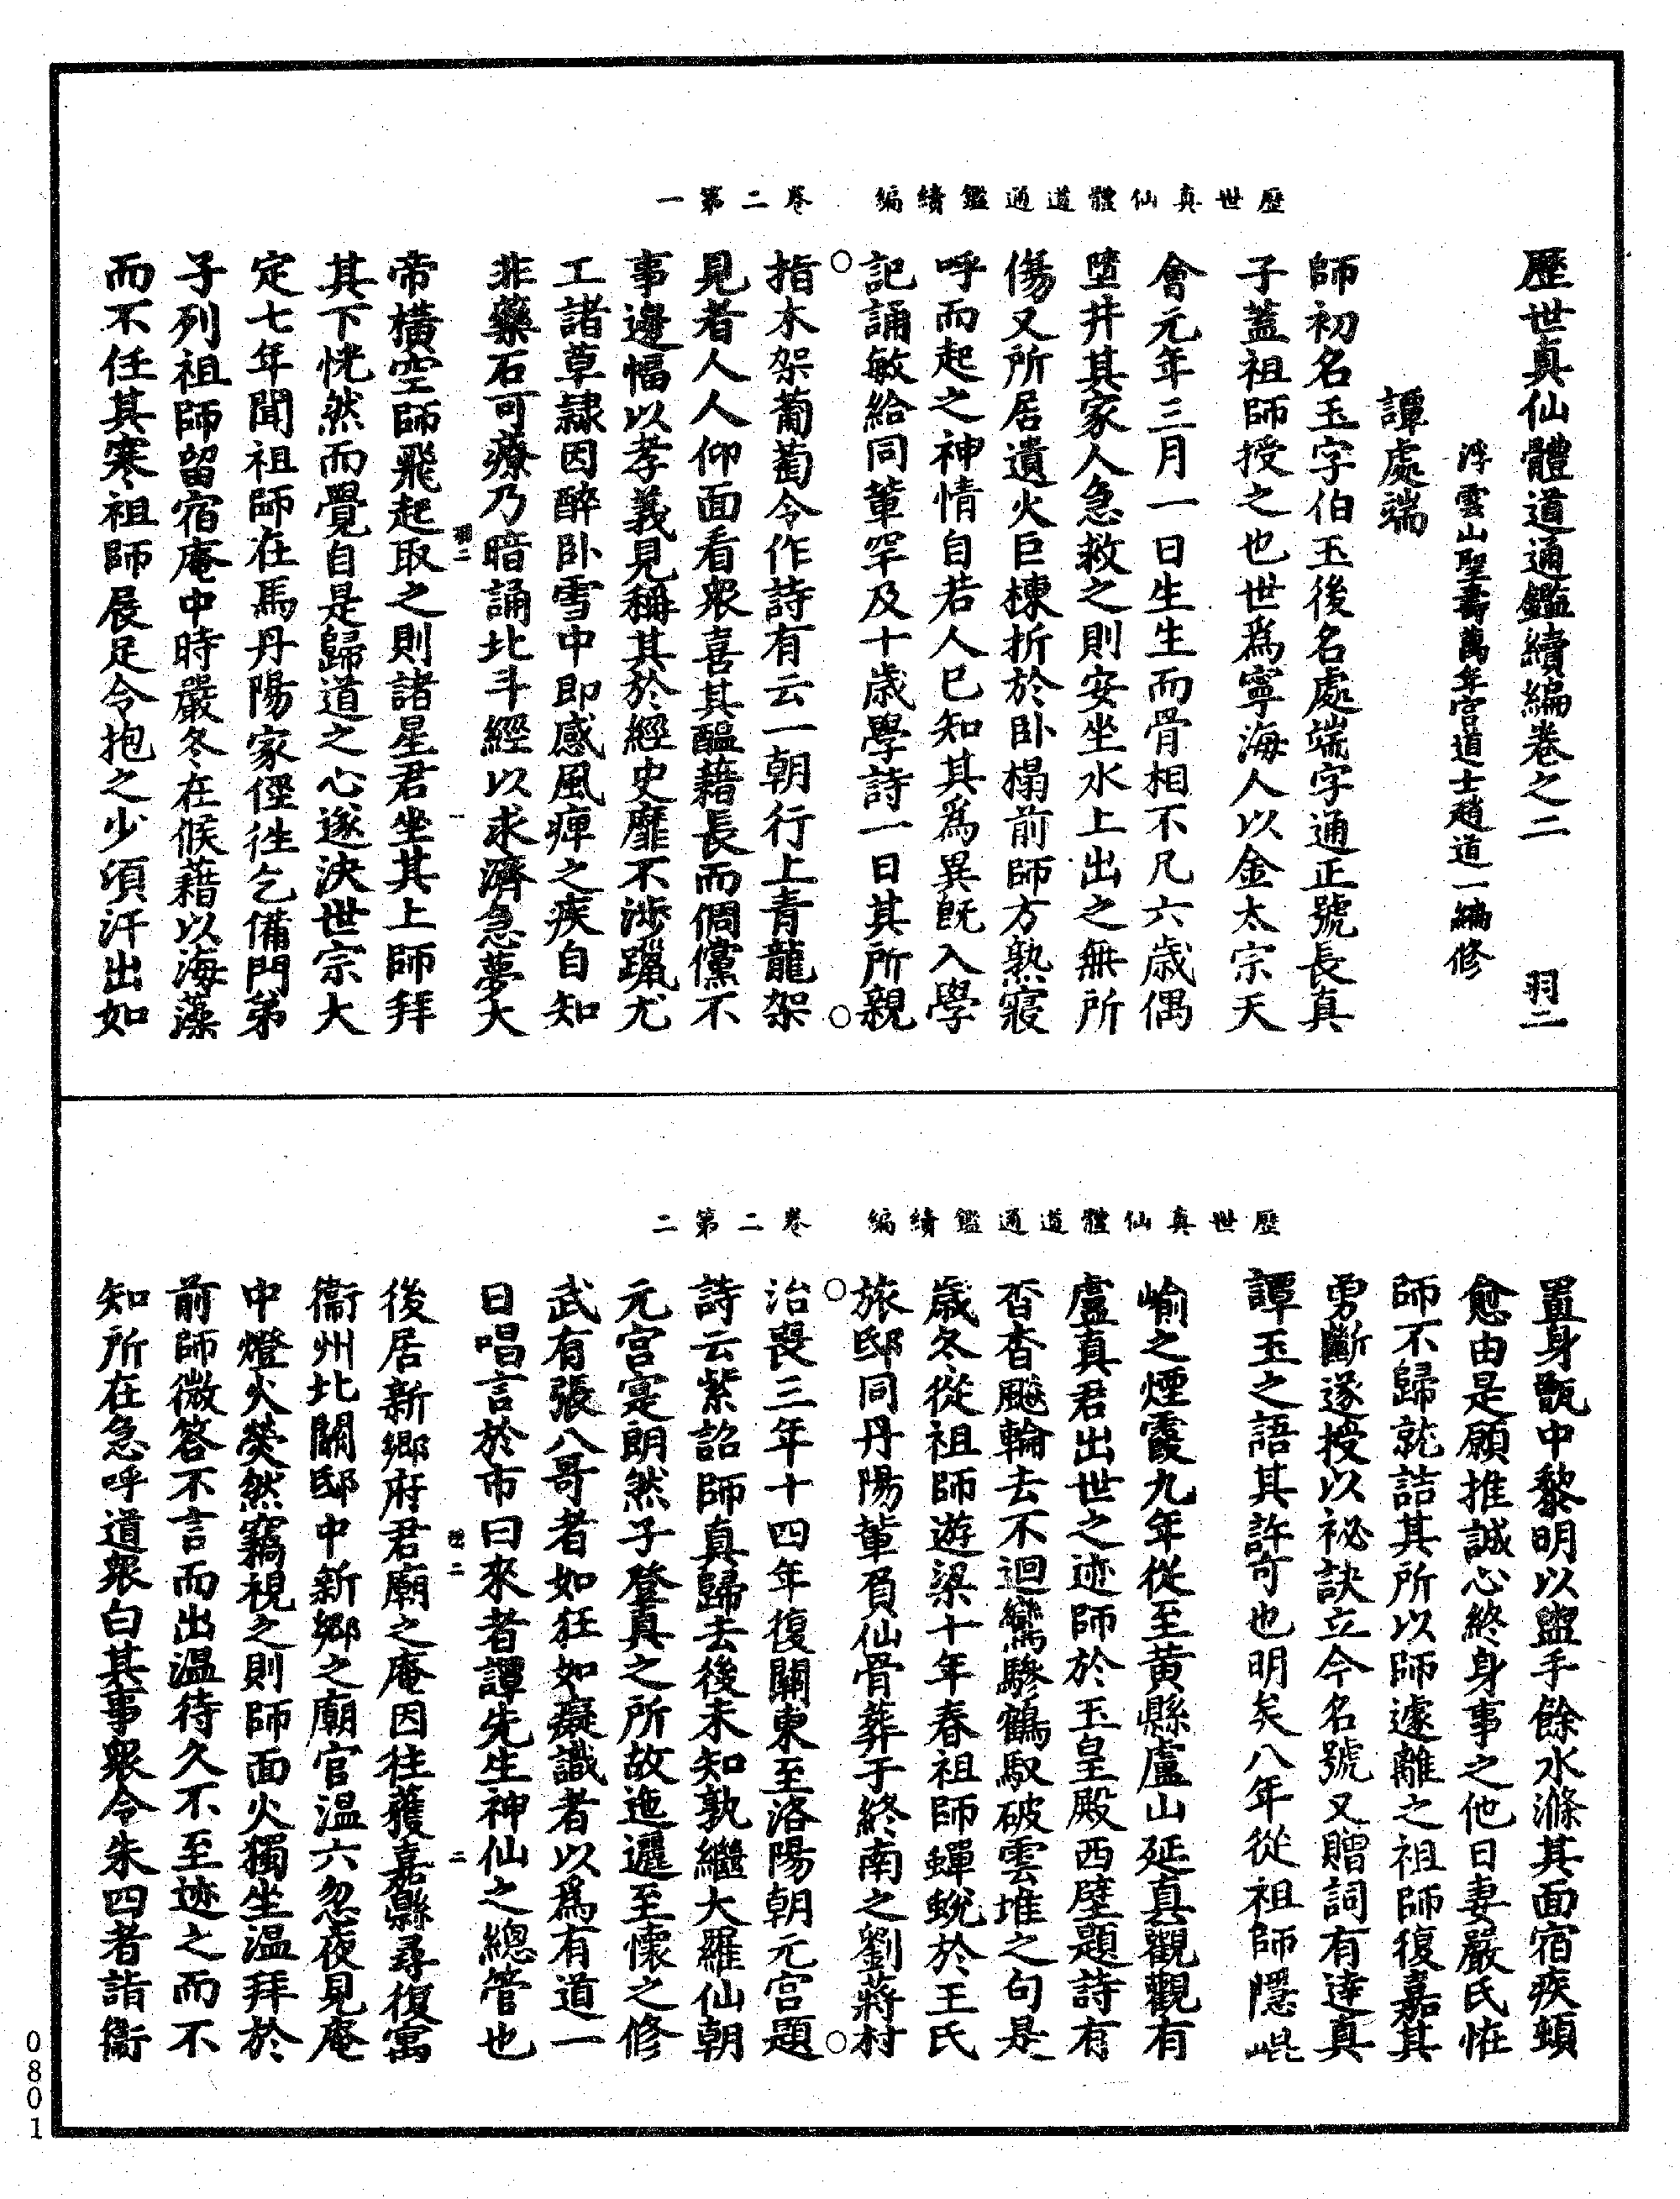 歷世真仙體道通鑑續編　卷二第一
歷世真仙體道通鑑續編卷之二　羽二
浮雲山聖壽萬年宮道士趙道一編修
譚處端
師初名玉字伯玉後名處端字通正號長真
子蓋祖師授之也世爲寧海人以金太宗天
會元年三月一日生生而骨相不凡六歲偶
墮井其家人急救之則安坐水上出之無所
傷又所居遺火巨棟折於卧榻前師方熟寢
呼而起之神情自若人已知其爲異既入學
記誦敏給同輩罕及十歲學詩一日其所親
指木架葡萄令作詩有云一朝行上青龍架
見者人人仰面看衆喜其醞藉長而倜儻不
事邊幅以孝義見稱其於經史靡不涉躐尤
工諸草隸因醉卧雪中即感風痺之疾自知
非藥石可療乃暗誦北斗經以求濟急夢大
羽二　一
帝橫空師飛起取之則諸星君坐其上師拜
其下恍然而覺自是歸道之心遂決世宗大
定七年聞祖師在馬丹陽家徑往乞備門弟
子列祖師留宿庵中時嚴冬在候藉以海藻
而不任其寒祖師展足令抱之少須汗出如
歷世真仙體道通鑑續編　卷二第二
置身甑中黎明以盥手餘水滌其面宿疾頓
愈由是願推誠心終身事之他日妻嚴氏恠
師不歸就詰其所以師遽離之祖師復嘉其
勇斷遂授以祕訣立今名號又贈詞有達真
譚玉之語其許可也明矣八年從祖師隱崐
嵛之煙霞九年從至黃縣盧山延真觀觀有
盧真君出世之迹師於玉皇殿西壁題詩有
杳杳飈輪去不迴鸞驂鶴馭破雲堆之句是
歲冬從祖師遊梁十年春祖師蟬蛻於王氏
旅邸同丹陽輩負仙骨葬于終南之劉蔣村
治喪三年十四年復關東至洛陽朝元宮題
詩云紫詔師真歸去後未知孰繼大羅仙朝
元宮寔朗然子登真之所故迤邐至懷之修
武有張八哥者如狂如癡識者以爲有道一
日唱言於市曰來者譚先生神仙之總管也
羽二　二
後居新鄉府君廟之庵因往獲嘉縣尋復寓
衞州北關邸中新鄉之廟官溫六忽夜見庵
中燈火熒然竊視之則師面火獨坐溫拜於
前師微答不言而出溫待久不至迹之而不
知所在急呼道衆白其事衆令朱四者詣衞
0801